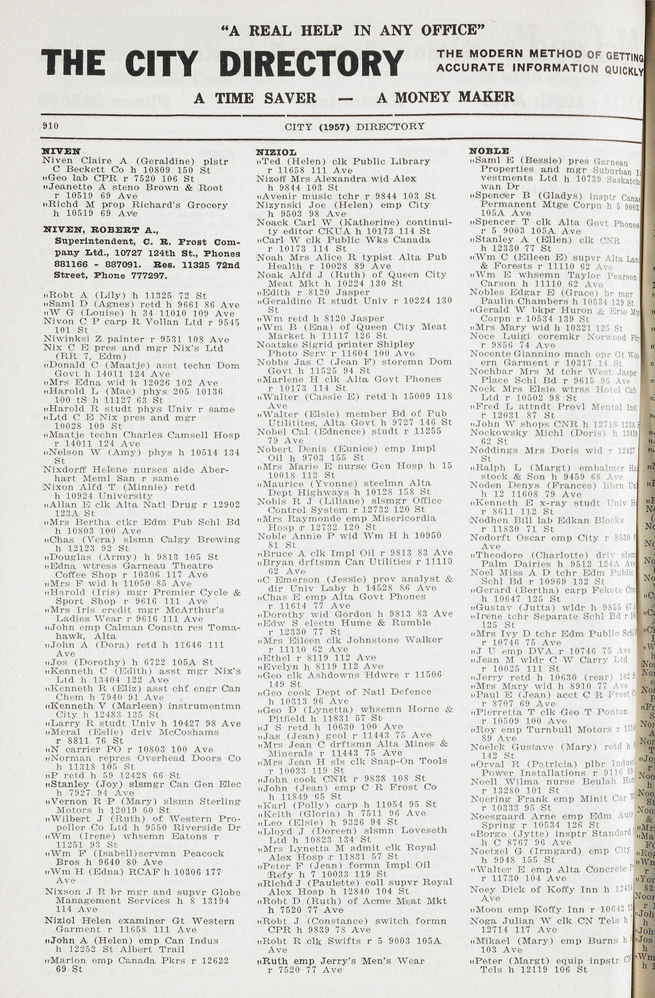 "A REAL HELP IN ANY OFFICE"
THE CITY DIRECTORY
THE MODERN METHOD OF GETTING
ACCURATE INFORMATION QUICKLY
A TIME SAVER — A MONEY MAKER
910
CITY (1957) DIRECTORY
NIVEN
Niven Claire A (Geraldine) plstr
C Beckett Co h 10809 150 St
„Geo lab CPR r 7520 106 St
„Jeanette A steno Brown & Root
r 10519 69 Ave
„Richd M prop Richard's Grocery
h 10519 69 Ave
NIVEN, ROBERT A.,
Superintendent, C. R. Frost Com-
pany Ltd., 10727 124th St., Phones
881166 - 837091. Res. 11325 72nd
Street, Phone 777297.
„Robt A (Lily) h 11325 72 St
„Saml D (Agnes) retd h 9661 86 Ave
„W G (Louise) h 34 11010 109 Ave
Nivon C P carp R Vollan Ltd r 9545
101 St
Niwinksi Z painter r 9531 108 Ave
Nix C E pres and mgr Nix's Ltd
(RR 7, Edm)
„Donald C (Maatje) asst techn Dom
Govt h 14011 124 Ave
„Mrs Edna wid h 12026 102 Ave
„Harold L (Mae) phys 205 10136
100 tS h 11127 63 St
„Harold R studt phys Univ r same
„Ltd C E Nix pres and mgr
10028 109 St
„Maatje techn Charles Camsell Hosp
r 14011 124 Ave
„Nelson W (Amy) phys h 10514 134
St
Nixdorff Helene nurses aide Aber-
hart Meml San r same
Nixon Alfd T (Minnie) retd
h 10924 University
„Allan E clk Alta Natl Drug r 12902
123A St
„Mrs Bertha ctkr Edm Pub Schl Bd
h 10803 100 Ave
„Chas (Vera) slsmn Calgy Brewing
h 12123 92 St
„Douglas (Army) h 9813 105 St
„Edna wtress Garneau Theatre
Coffee Shop r 10306 117 Ave
„Mrs F wid h 11050 85 Ave
„Harold (Iris) mgr Premier Cycle &
Sport Shop r 9616 111 Ave
„Mrs Iris credit mgr McArthur's
Ladies Wear r 9616 111 Ave
„John emp Calman Constn res Toma-
hawk, Alta
„John A (Dora) retd h 11646 111
Ave
„Jos (Dorothy) h 6722 105A St
„Kenneth C (Edith) asst mgr Nix's
Ltd h 13404 122 Ave
„Kenneth R (Eliz) asst chf engr Can
Chem h 7940 91 Ave
„Kenneth V (Marleen) instrumentmn
City h 12483 135 St
„Larry R studt Univ h 10427 98 Ave
„Meral (Eslie) driv McCoshams
r 8811 76 St
„N carrier PO r 10803 100 Ave
„Norman repres Overhead Doors Co
h 11318 105 St
„P retd h 59 12428 66 St
„Stanley (Joy) slsmgr Can Gen Elec
h 7927 94 Ave
„Vernon R P (Mary) slsmn Sterling
Motors h 12019 60 St
„Wilbert J (Ruth) of Western Pro-
peller Co Ltd h 9550 Riverside Dr
„Wm (Irene) whsemn Eatons r
11251 93 St
„Wm F (Isabell)servmn Peacock
Bros h 9640 80 Ave
„Wm H (Edna) RCAF h 10306 177
Ave
Nixson J R br mgr and supvr Globe
Management Services h 8 13194
114 Ave
Niziol Helen examiner Gt Western
Garment r 11658 111 Ave
„John A (Helen) emp Can Indus
h 12252 St Albert Trail
„Marion emp Canada Pkrs r 12622
69 St
NIZIOL
„Ted (Helen) clk Public Library
r 11658 111 Ave
Nizoff Mrs Alexandra wid Alex
h 9844 103 St
„Avenir music tchr r 9844 103 St
Nizynski Joe (Helen) emp City
h 9503 98 Ave
Noack Carl W (Katherine) continui-
ty editor CKUA h 10173 114 St
„Carl W clk Public Wks Canada
r 10173 114 St
Noah Mrs Alice R typist Alta Pub
Health r 10028 89 Ave
Noak Alfd J (Ruth) of Queen City
Meat Mkt h 10224 130 St
„Edith r 8120 Jasper
„Geraldine R studt Univ r 10224 130
St
„Wm retd h 8120 Jasper
„Wm B (Ena) of Queen City Meat
Market h 11117 126 St
Noatzke Sigrid printer Shipley
Photo Serv r 11604 100 Ave
Nobbs Jas C (Jean F) storemn Dom
Govt h 11525 94 St
„Marlene H clk Alta Govt Phones
r 10173 114 St
„Walter (Cassie E) retd h 15009 118
Ave
„Walter (Elsie) member Bd of Pub
Utilitites, Alta Govt h 9727 146 St
Nobel Cal (Ednence) studt r 11255
79 Ave
Nobert Denis (Eunice) emp Impl
Oil h 9703 155 St
„Mrs Marie E nurse Gen Hosp h 15
10018 112 St
„Maurice (Yvonne) steelmn Alta
Dept Highways h 10128 158 St
Nobis R J (Liliane) slsmgr Office
Control System r 12732 120 St
„Mrs Raymonde emp Misericordia
Hosp r 12732 120 St
Noble Annie P wid Wm H h 10950
81 St
„Bruce A clk Impl Oil r 9813 83 Ave
„Bryan drftsmn Can Utilities r 11110
62 Ave
„C Emerson (Jessie) prov analyst &
dir Univ Laby h 14528 86 Ave
„Chas E emp Alta Govt Phones
r 11614 77 Ave
„Dorothy wid Gordon h 9813 83 Ave
„Edw S electn Hume & Rumble
r 12330 77 St
„Mrs Eileen clk Johnstone Walker
r 11110 62 Ave
„Ethel r 8119 112 Ave
„Evelyn h 8119 112 Ave
„Geo clk Ashdowns Hdwre r 11506
149 St
„Geo cook Dept of Natl Defence
h 10313 96 Ave
„Geo D (Lynetta) whsemn Horne &
Pitfield h 11831 57 St
„J S retd h 10630 100 Ave
„Jas (Jean) geol r 11443 75 Ave
„Mrs Jean C drftsmn Alta Mines &
Minerals r 11443 75 Ave
„Mrs Jean H sls clk Snap-On Tools
r 10033 119 St
„John cook CNR r 9838 108 St
„John (Jean) emp C R Frost Co
h 11849 65 St
„Karl (Polly) carp h 11054 95 St
„Keith (Gloria) h 7511 96 Ave
„Leo (Elsie) h 9326 94 St
„Lloyd J (Doreen) slsmn Loveseth
Ltd h 10823 134 St
„Mrs Lynetta M admit clk Royal
Alex Hosp r 11831 57 St
„Peter F (Jean) formn Impl Oil
Refy h 7 10033 119 St
„Richd J (Paulette) coll supvr Royal
Alex Hosp h 12840 104 St
„Robt D (Ruth) of Acme Meat Mkt
h 7520 77 Ave
„Robt J (Constance) switch formn
CPR h 9839 78 Ave
„Robt R clk Swifts r 5 9003 105A
Ave
„Ruth emp Jerry's Men's Wear
r 7520 77 Ave
NOBLE
„Saml E (Bessie) pres Garneau
Properties and mgr Suburban
vestments Ltd h 10739
wan Dr
„Spencer B (Gladys) insptr
Permanent Mtge Corpn h 5
105A Ave
„Spencer T clk Alta Govt Phones
r 5 9003 105A Ave
„Stanley A (Ellen) clk CNR
h 12330 77 St
„Wm C (Eileen E) supvr Alta
& Forests r 11110 62 Ave
„Wm E whsemn Taylor Pearson
Carson h 11110 62 Ave
Nobles Edgar E (Grace) br mgr
Paulin Chambers h 10534 139 St
„Gerald W bkpr Huron & Erie
Corpn r 10534 139 St
„Mrs Mary wid h 10321 125 St
Noce Luigi coremkr Norwood
r 9856 74 Ave
Nocente Giannino mach opr Gt
ern Garment r 10317 14 St
Nochbar Mrs M tchr West Jasper
Place Schl Bd r 9615 95 Ave
Nock Mrs Elsie wtrss Hotel
Ltd r 10502 98 St
„Fred L attndt Provl Mental
r 12031 87 St
„John W shops CNR h 12718
Nockowsky Michl (Doris) h
62 St
Noddings Mrs Doris wid r 12427
St
„Ralph L (Margt) embalmer
stock & Son h 9459 68 Ave
Noden Denys (Frances) librn
h 12 11608 79 Ave
„Kenneth E x-ray studt Univ
r 8611 112 St
Nodhen Bill lab Edkan Blocks
r 11830 71 St
Nodorft Oscar emp City r 8530
Ave
„Theodore (Charlotte) driv
Palm Dairies h 9512 124A
Noel Miss A D tchr Edm Public
Schl Bd r 10969 132 St
„Gerard (Bertha) carp Fekete
h 10647 125 St
„Gustav (Jutta) wldr h 9855
„Irene tchr Separate Schl Bd r
125 St
„Mrs Ivy D tchr Edm Public
r 10746 75 Ave
„J U emp DVA r 10746 75 Ave
„Jean M wldr C W Carry Ltd
r 10025 111 St
„Jerry retd h 10630 (rear)
„Mrs Mary wid h 8910 77 Ave
„Paul E (Jean) acct C R Frost
r 8707 69 Ave
„Pierretta T clk Geo T Ponton
r 10509 100 Ave
„Roy emp Turnbull Motors r
89 Ave
Noelck Gustave (Mary) retd h
142 St
„Orval R (Patricia) plbr
Power Installations r 9116
Noell Wilma nurse Beulah
r 13280 101 St
Noering Frank emp Minit Car
r 10333 95 St
Noesgaard Arne emp Edm
Spring r 10534 126 St
„Borge (Jytte) insptr Standard
h C 8767 96 Ave
Noetzel G (Irmgard) emp City
h 9948 155 St
„Walter E emp Alta Concrete
r 11730 104 Ave
Noey Dick of Koffy Inn h
Ave
„Moon emp Koffy Inn r 10642
Noga Julian W clk CN Tels h
12714 117 Ave
„Mikael (Mary) emp Burns h
103 Ave
„Peter (Margt) equip inspstr
Tels h 12119 106 St